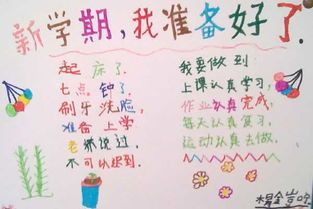 新学期,我准备好了.
起床了.
七点钟了.
刷牙洗脸,
准备上学
老师说过,
不可以迟到.
我要做到
上课认真学习,
作业认真完成,
每天认真复习,
运动认真去做.